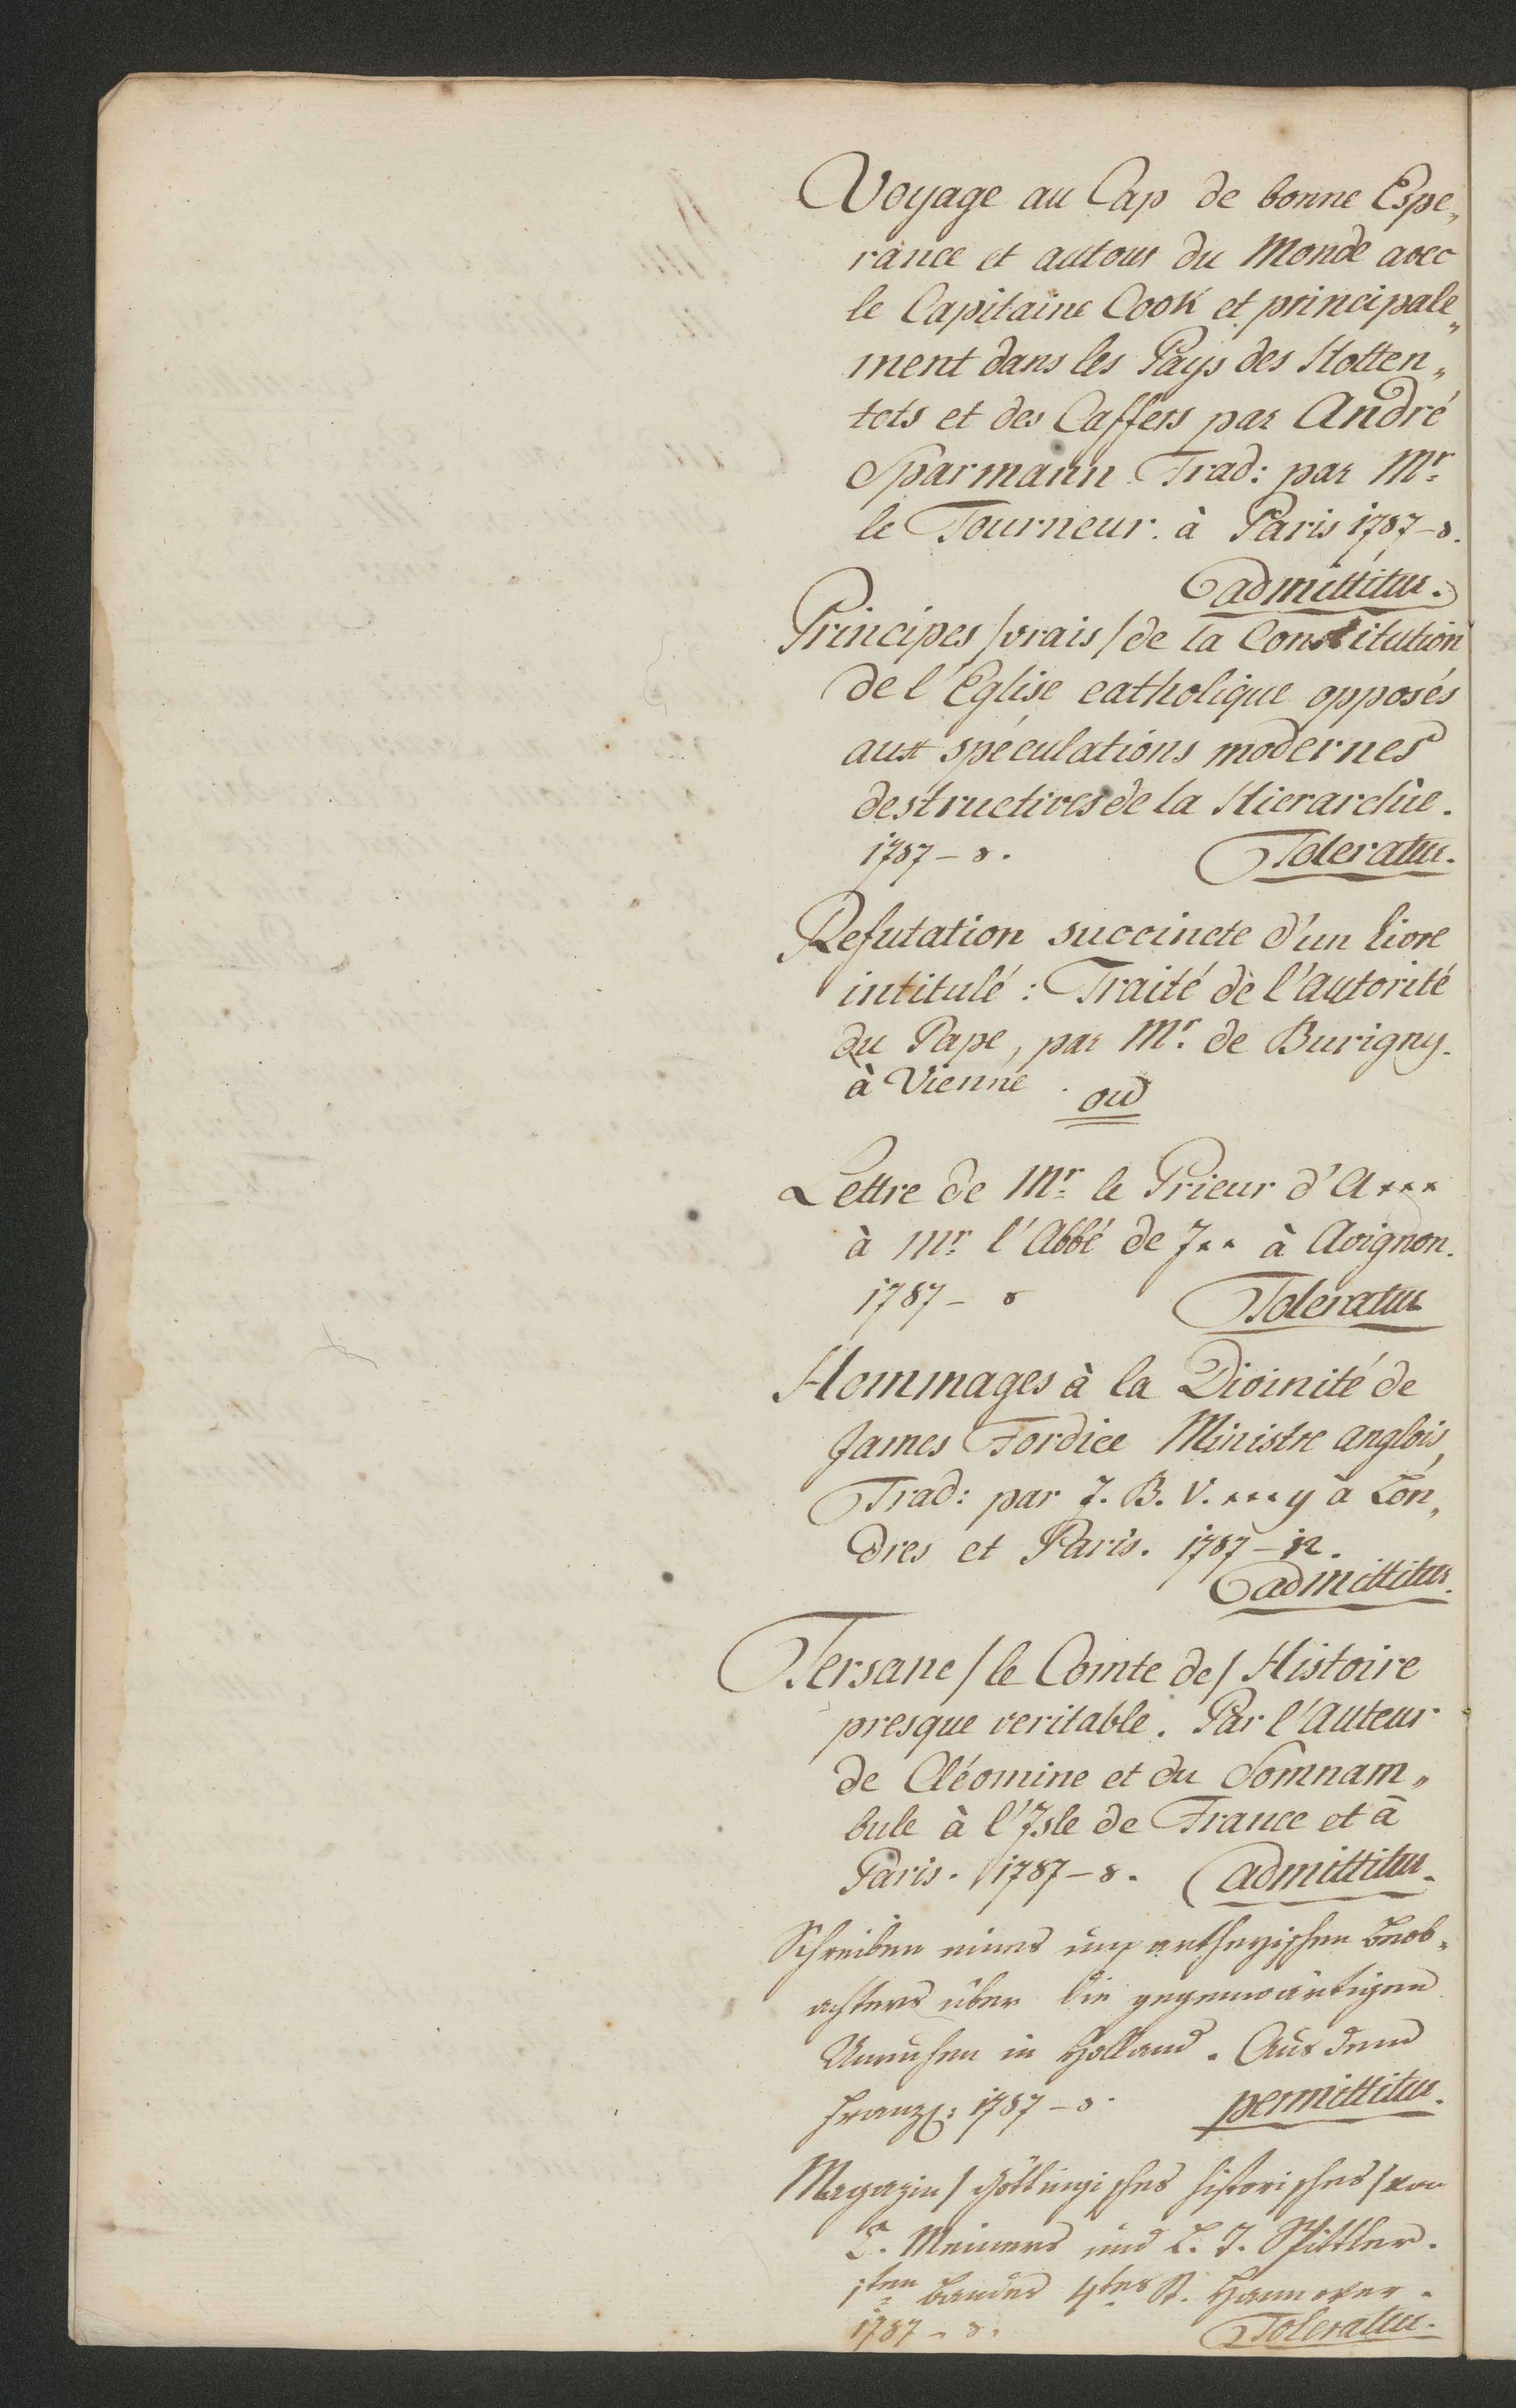 Voyage au Cap de bonne Espe„
rance et autour du Monde avec
le Capitaine Cook et principale„
ment dans les Pays des Hotten„
tots et des Caffers par André
Sparmann Trad: par Mr.
le Tourneur. à Paris 1787–8.
admittitur.
Principes /vrais/ de la Constitution
de l'Eglise catholique opposés
aux spéculations modernes
destructives de la Hierarchie.
1787–8. Toleratur.
Refutation succincte d'un livre
intitulé: Traité de l'autorité
du Pape, par Mr. de Burigny.
à Vienne.
ou
Lettre de Mr. le Prieur d'A***
à Mr. l'Abbé de J** à Avignon.
1787–8 Toleratur
Hommages à la Divinité de
James Fordice Ministre anglois,
Trad: par J. B. V. ***y à Lon„
dres et Paris. 1787–12.
admittitur.
Tersane /le Comte de/ Histoire
presque veritable. Par l'Auteur
de Cléomine et du Somnam„
bule à l'Isle de France et à
Paris. 1787–8. admittitur.
Schreiben eines unpartheyischen Beob„
achters über die gegenwärtigen
Unruhen in Holland. Aus dem
Franz: 1787–8. permittitur.
Magazin /Göttingisches historisches/ von
C. Meiners und L. T. Spittler.
1ten Bandes 4tes St. Hannover.
1787–8. Toleratur.